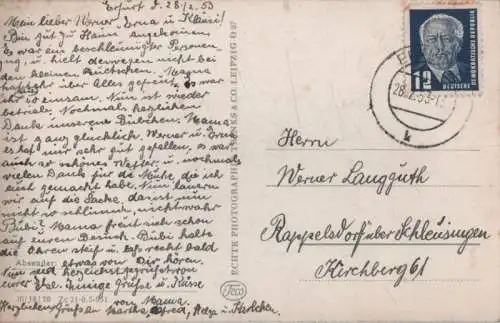 Erfurt, d. 28/2. 53
Mein lieber Werner, Erna u. Kläusi!
Bin gut zu Hause angekommen.
Es war ein beschleunigter Personen
zug u. hielt deswegen nicht bei
den kleinen Rutschen. Mama
sich über Alles gefreut, es war
ihr so einsam. Nun ist wieder
betrieb. Nochmals herzlichen
Dank unserem Bübchen. Mama
ist ganz glücklich. Werner u. Erna
es hat mir sehr gut gefallen, es war
auch so schönes Wetter, u. nochmals
vielen Dank für die Mühe, die ich
euch gemacht habe. Nun lauern
wir auf die Sache, das ist nun
nicht so schlimm, nicht wahr
Bübi? Mama freut sich schon
auf euren Besuch. Bübi halte
die Ohren steif u. laß recht bald
etwas von Dir hören.
Nun seid herzlichst gegrüßt von
eurer Innige Grüße u. Küsse
von Mama.
Herzlichen Gruß an Martha u. Karlchen.
Absender:
III/18/170 Zc 21-0,5-951
ECHTE PHOTOGRAPHIE & CO., LEIPZIG O 27
12
DEUTSCHE
DEMOKRATISCHE REPUBLIK
28.2.53
k
Herrn
Werner Langguth
Rappelsdorf über Schleusingen
Kirchberg 61